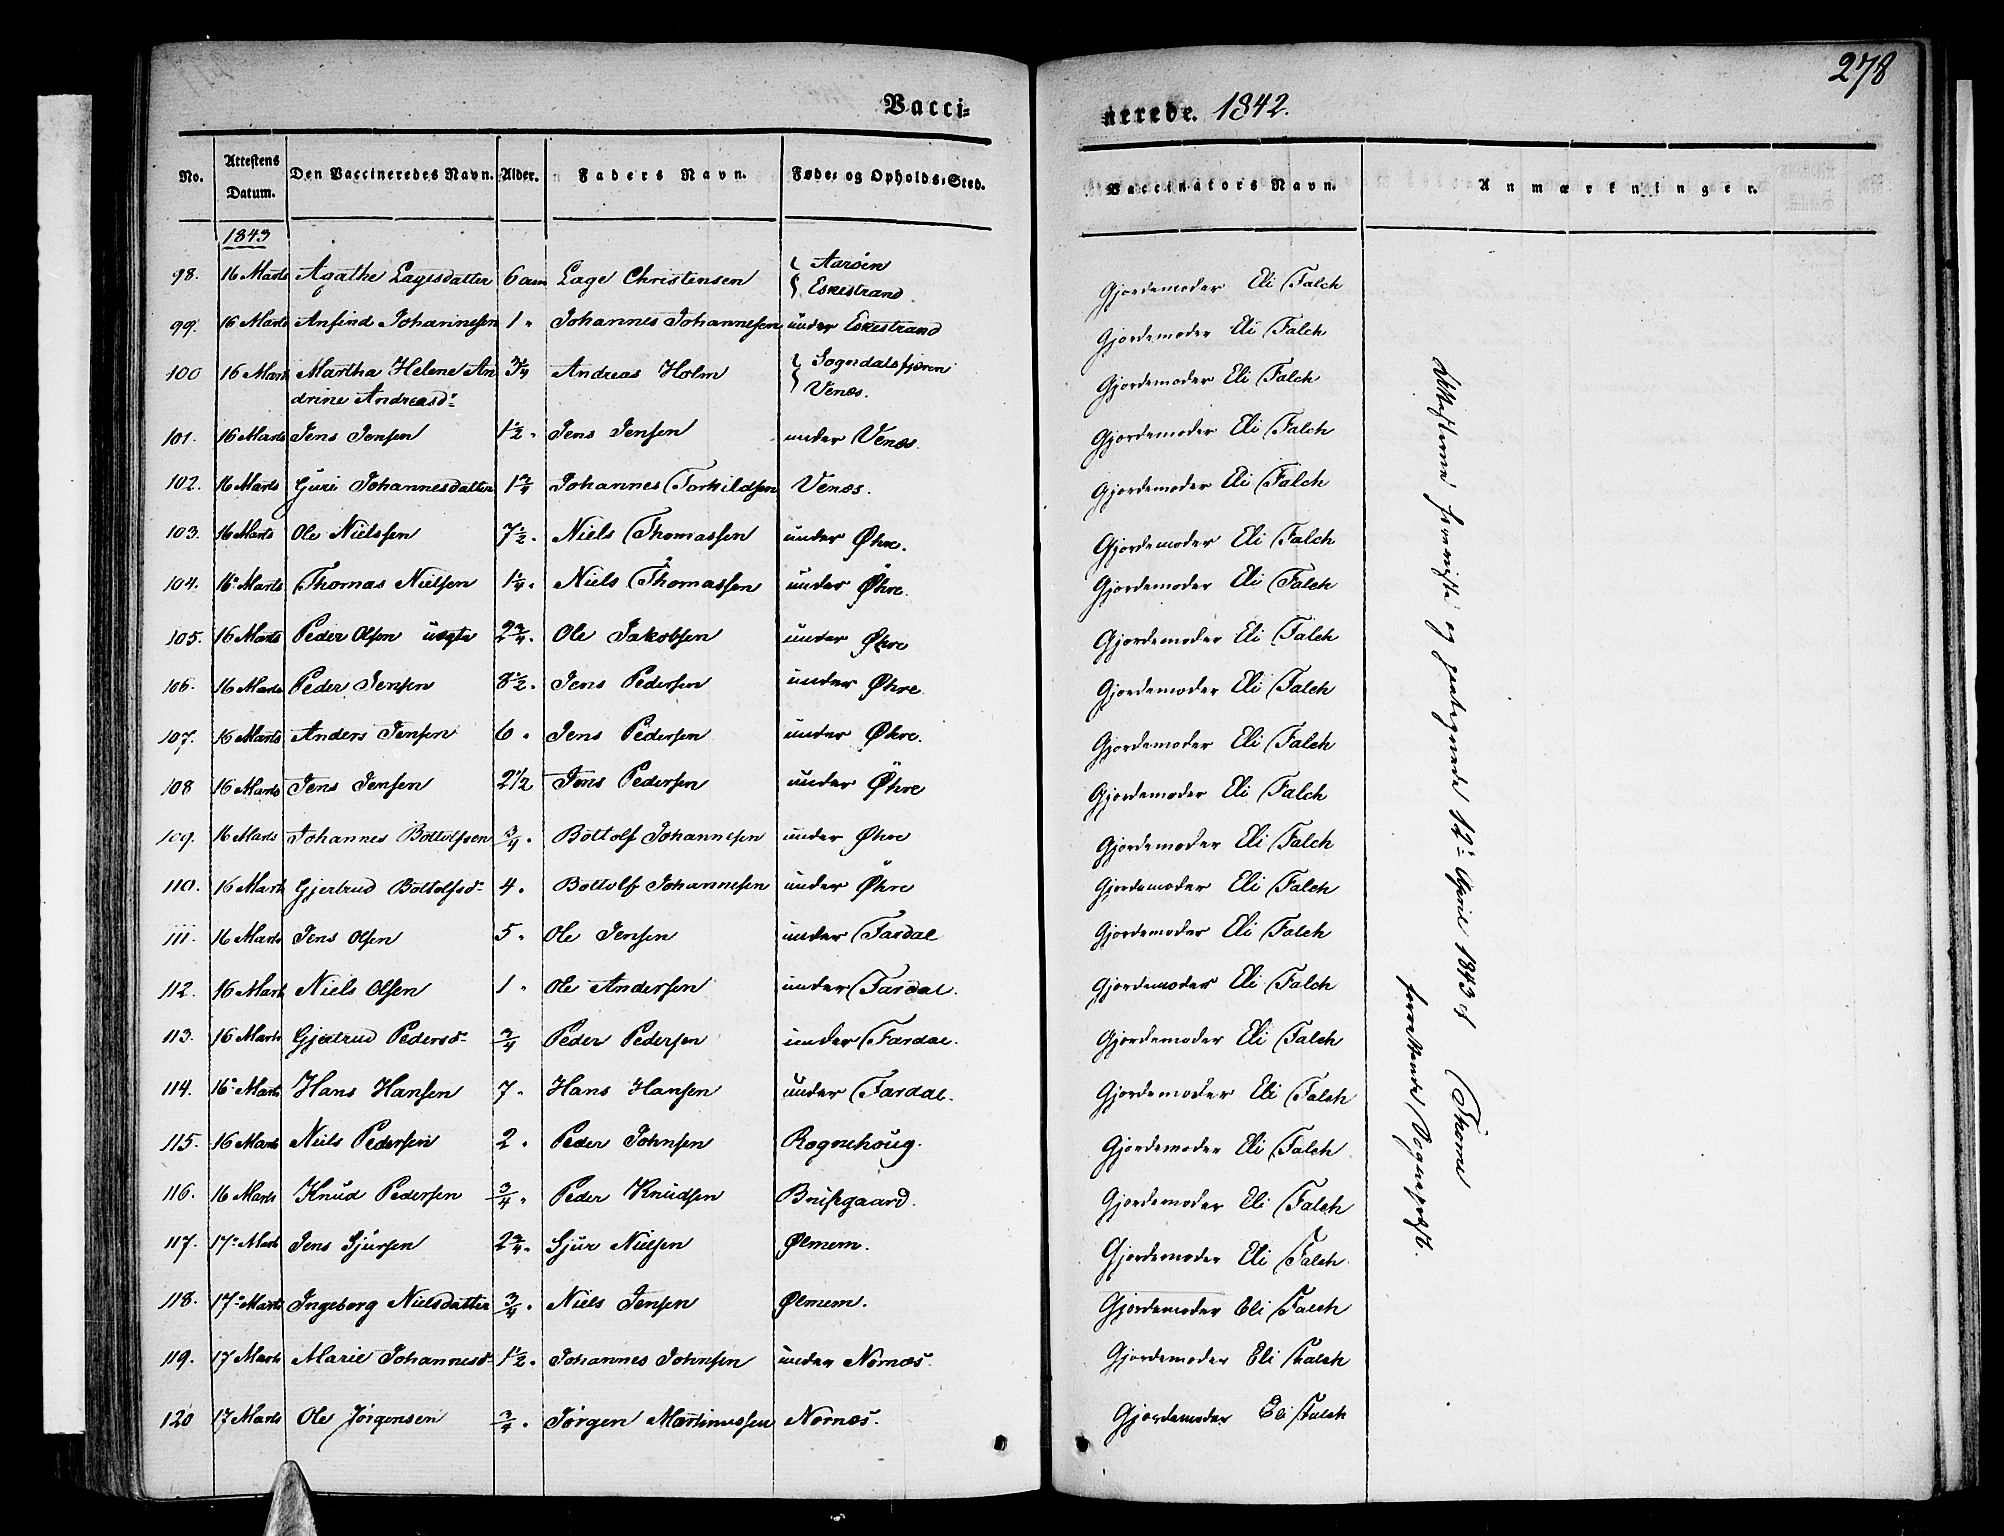 278
Vacci= nerede. 1842.
No. Attestens Datum. Den Vaccineredes Navn. Alder. Faders Navn. Føde= og Opholds=Sted. Vaccinators Navn. Anmærkninger.
1843
98. 16 Marts Agathe Lagesdatter 6 Lage Christensen { Aarøen Gjordemoder Eli Falch
{ Eskestrand
99. 16 Marts Anfind Johannesen 1 " Johannes Johannesen under Eskestrand Gjordemoder Eli Falch
100 16 Mart Martha Helene An 3/4 Andreas Holm { Sogndalsfjæren Gjordemoder Eli Falch
drine Andreasd- { Venæs.
101. 16 Marts Jens Jensen 1½ " Jens Jensen under Venæs Gjordemoder Eli Falch
102. 16 Marts Guri Johannesdatter 1¾ Johannes Torkildsen Venæs. Gjordemoder Eli Falch
103. 16 Marts Ole Nielssen 7½ " Niels Thomassen under Øhre. Gjordemoder Eli Falch
104. 16 Marts Thomas Nielsen 1¼ " Niels Thomassen under Øhre. Gjordemoder Eli Falch
105. 16 Marts Peder Olsen uægte 2¾ " Ole Jakobsen under Øhre Gjordemoder Eli Falch
106. 16 Marts Peder Jensen 8½ " Jens Pedersen under Øhre Gjordemoder Eli Falch
107. 16 Marts Anders Jensen 6 " Jens Pedersen under Øhre. Gjordemoder Eli Falch
108 16 Marts Jens Jensen 2 1/2 Jens Pedersen under Øhre Gjordemoder Eli Falch
109. 16 Marts Johannes Bottolfsen 3/4 " Bottolf Johannesen under Øhre Gjordemoder Eli Falch
110. 16 Mart Gjertrud Bottolfsd- 4 " Bottolf Johannesen under Øhre Gjordemoder Eli Falch
111. 16 Marts Jens Olsen 5 " Ole Jensen under Fardal Gjordemoder Eli Falch
112. 16 Mart Niels Olsen 1 " Ole Andersen under Fardal. Gjordemoder Eli Falch
113. 16 Marts Gjertrud Pedersd- 3/4 Peder Pedersen under Fardal. Gjordemoder Eli Falch
114. 16 Marts Hans Hansen 7 " Hans Hansen under Fardal. Gjordemoder Eli Falch
115. 16 Marts Niels Pedersen 2 " Peder Johnsen Rognehoug. Gjordemoder Eli Falch
116. 16 Marts Knud Pedersen 3/4 " Peder Knudsen Gjordemoder Eli Falch
117. 17 Mart Jens Sjursen 2¾ " Sjur Nielsen Ølmem. Gjordemoder Eli Falch
118. 17 Marts Ingeborg Nielsdatter 3/4 " Niels Jensen Ølmem. Gjordemoder Eli Falch
119. 17 Marts Marie Johannesd- 1½ " Johannes Johnsen under Nornæs. Gjordemoder Eli Falch
120 17 Marts Ole Jørgensen 3/4 " Jørgen Martinussen Nornæs. Gjordemoder Eli Falch
Attesterne foreviste og paategnede 12- April 1843 af Thome
Sogneprest.